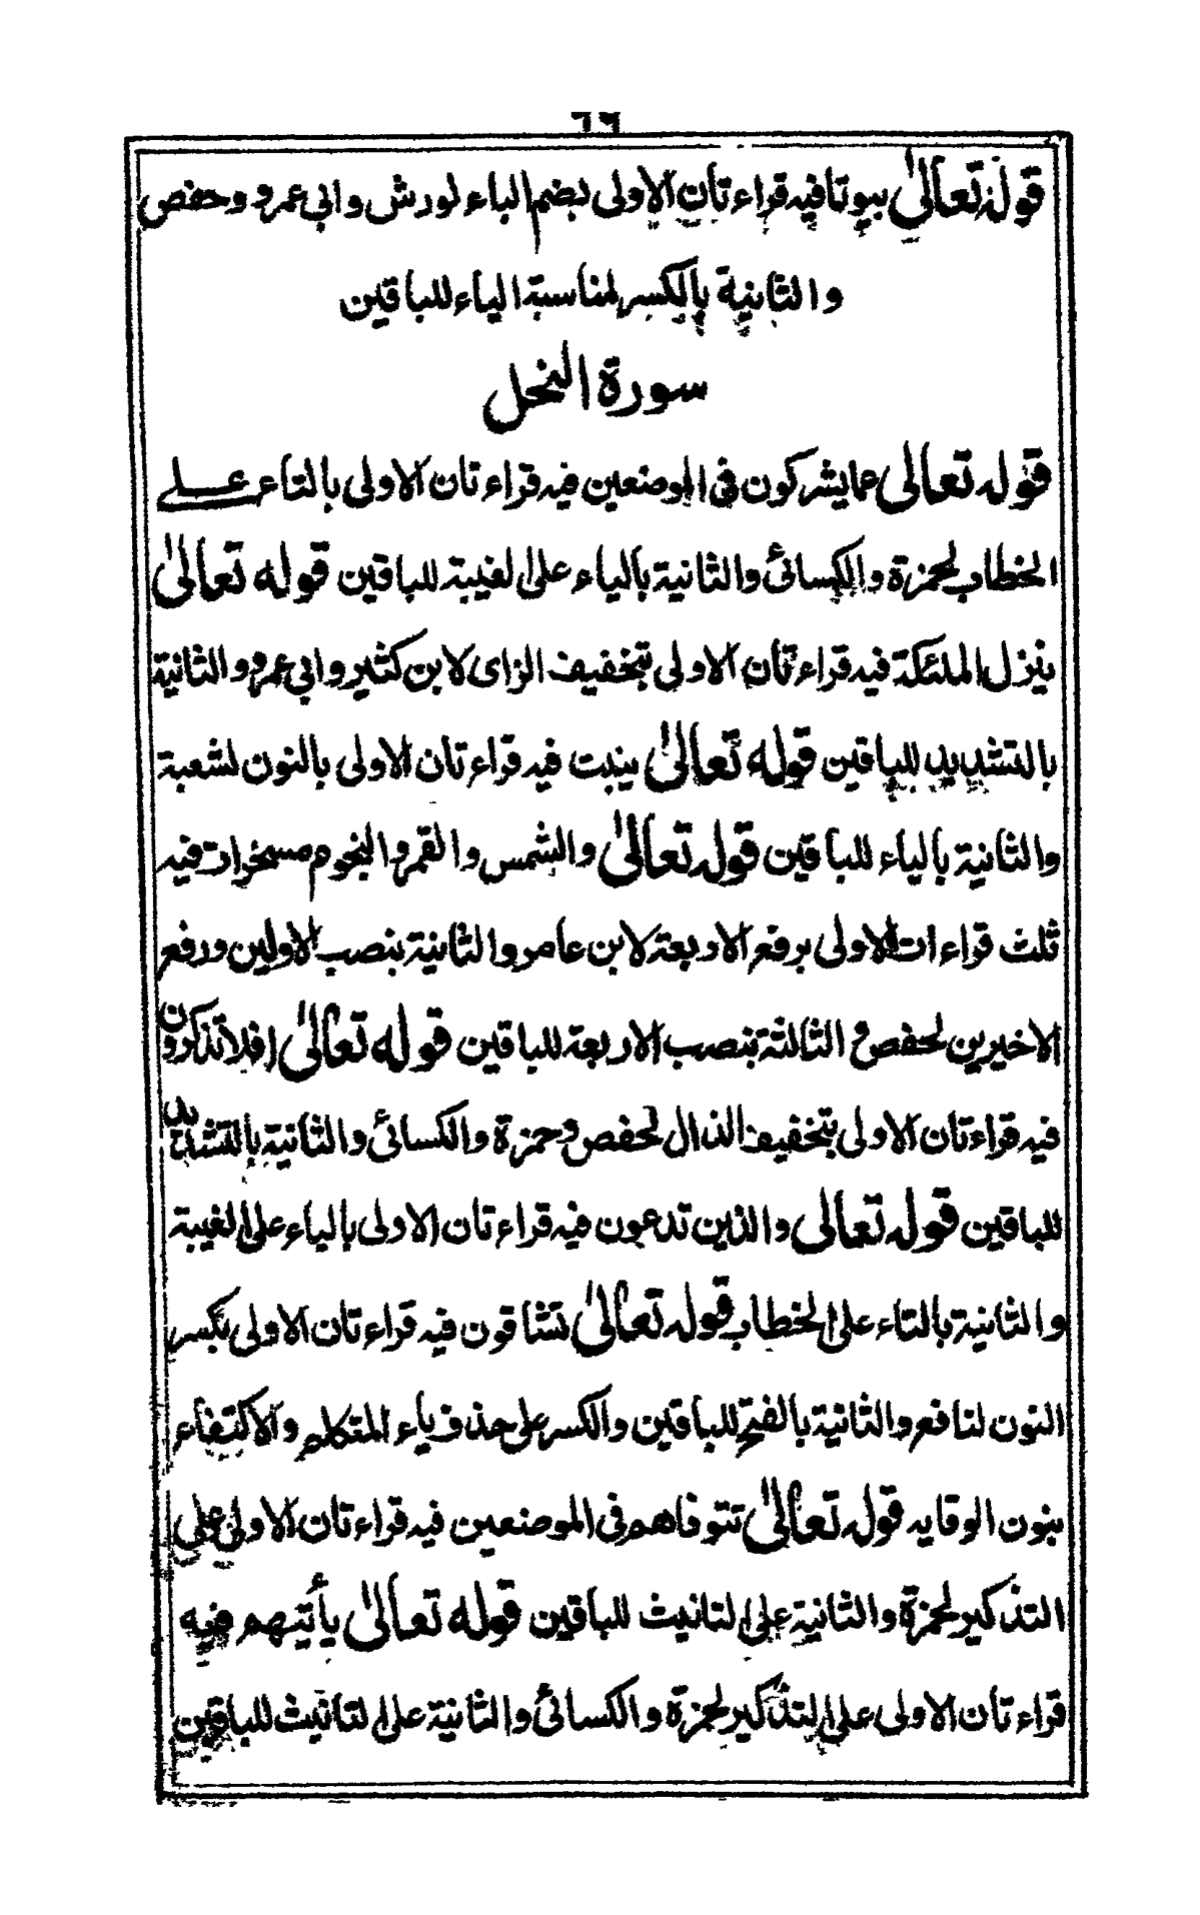 ٦٩
قوله تعالىٰ بيوتا فيه قراءتان الاولى بضم الباء لورش وابي عمرو وحفص
والثانية بالكسر لمناسبة الياء للباقين
سورة النحل
قوله تعالى عما يشركون فى الموضعين فيه قراءتان الاولى بالتاء على
الخطاب لحمزة والكسائى والثانية بالياء على الغيبة للباقين قوله تعالىٰ
ينزل الملئكة فيه قراءتان الاولى بتخفيف الزاى لابن كثير وابي عمرو والثانية
بالتشديد للباقين قوله تعالىٰ ينبت فيه قراءتان الاولى بالنون لشعبة
والثانية بالياء للباقين قوله تعالىٰ والشمس والقمر والنجوم مسخرات فيه
ثلث قراءات الاولى برفع الاربعة لابن عامر والثانية بنصب الاولين ورفع
الاخيرين لحفص والثالثة بنصب الاربعة للباقين قوله تعالىٰ افلا تذكرون
فيه قراءتان الاولى بتخفيف الذال لحفص وحمزة والكسائى والثانية بالتشديد
للباقين قوله تعالى والذين تدعون فيه قراءتان الاولى بالياء على الغيبة
والثانية بالتاء على الخطاب قوله تعالىٰ تشاقون فيه قراءتان الاولى بكسر
النون لنافع والثانية بالفتح للباقين والكسر على حذف ياء المتكلم والاكتفاء
بنون الوقايه قوله تعالىٰ تتوفاهم فى الموضعين فيه قراءتان الاولى على
التذكير لحمزة والثانية على التانيث للباقين قوله تعالىٰ يأتيهم فيه
قراءتان الاولى على التذكير لحمزة والكسائى والثانية على التانيث للباقين